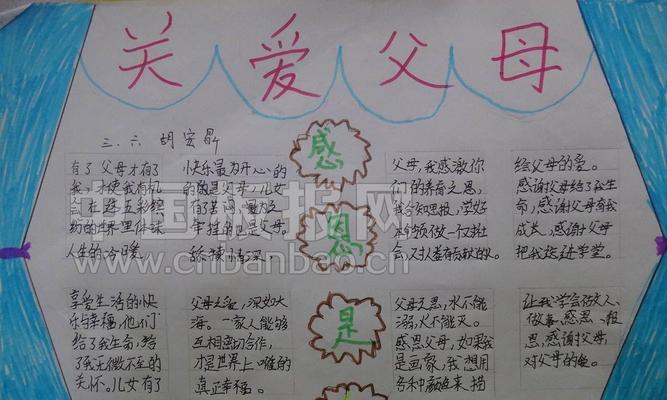 关爱父母
三、六 胡宏
感
恩
是
有了父母才有了
我,才使我有机
会在这五彩缤
纷的世界里体味
人生的冷暖
享受生活的快
乐与幸福,他们
给了我生命,给
了我无微不至的
关怀。儿女有了
快乐最为开心的
的的是父母,儿女
有了苦闷,最为之
牵挂的也是父母。
舐犊情深
父母之爱,深如大
海。一家人能够
互相密切合作,
才是世界上唯的
真正幸福。
父母,我感激你
们的养育之恩,
我会知恩报,学好
本领做一仅社
会、对人类有贡献的人。
父母之恩,水不能
溺,火不能灭。
感恩父母,如果我
是画家,我想用
各种颜色来描
绘父母的爱。
感谢父母给了我生
命,感谢父母育我
成长,感谢父母
把我送进学堂。
让我学会做人、
做事。感恩、报
恩,感谢父母
对父母的
中国板报网
www.cnbanbao.cn